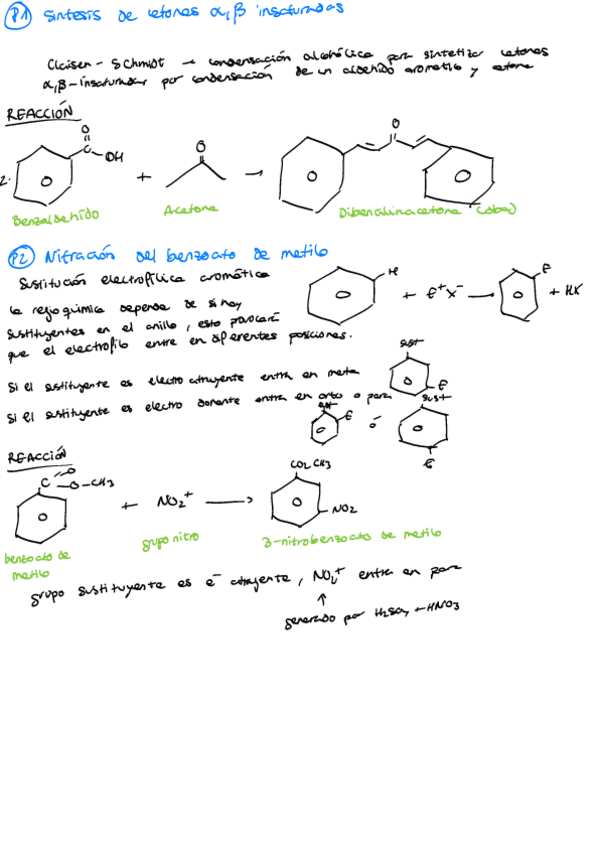 P1 Síntesis de cetonas α,β insaturadas
Claisen - Schmidt → condensación alcohólica para sintetizar cetonas
α,β-insaturadas por condensación de un aldehído aromático y cetona
REACCIÓN
O
C OH
O
O
2.
+
→
Benzaldehído
Acetona
Dibenalinacetona (dba)
P2 Nitración del benzoato de metilo
Sustitución electrofílica aromática
H + E+ X- → E + HX
la regioquímica depende de si hay
sustituyentes en el anillo, esto provocará
que el electrofilo entre en diferentes posiciones.
Si el sustituyente es electro atrayente entra en meta
sust
E
Si el sustituyente es electro donante entra en orto o para
sust
E
ó
sust
E
REACCIÓN
C O
O-CH3
+ NO2+ →
CO2CH3
NO2
benzoato de
metilo
grupo nitro
3-nitrobenzoato de metilo
grupo sustituyente es e- atrayente, NO2+ entra en para
↑
generado por H2SO4 + HNO3